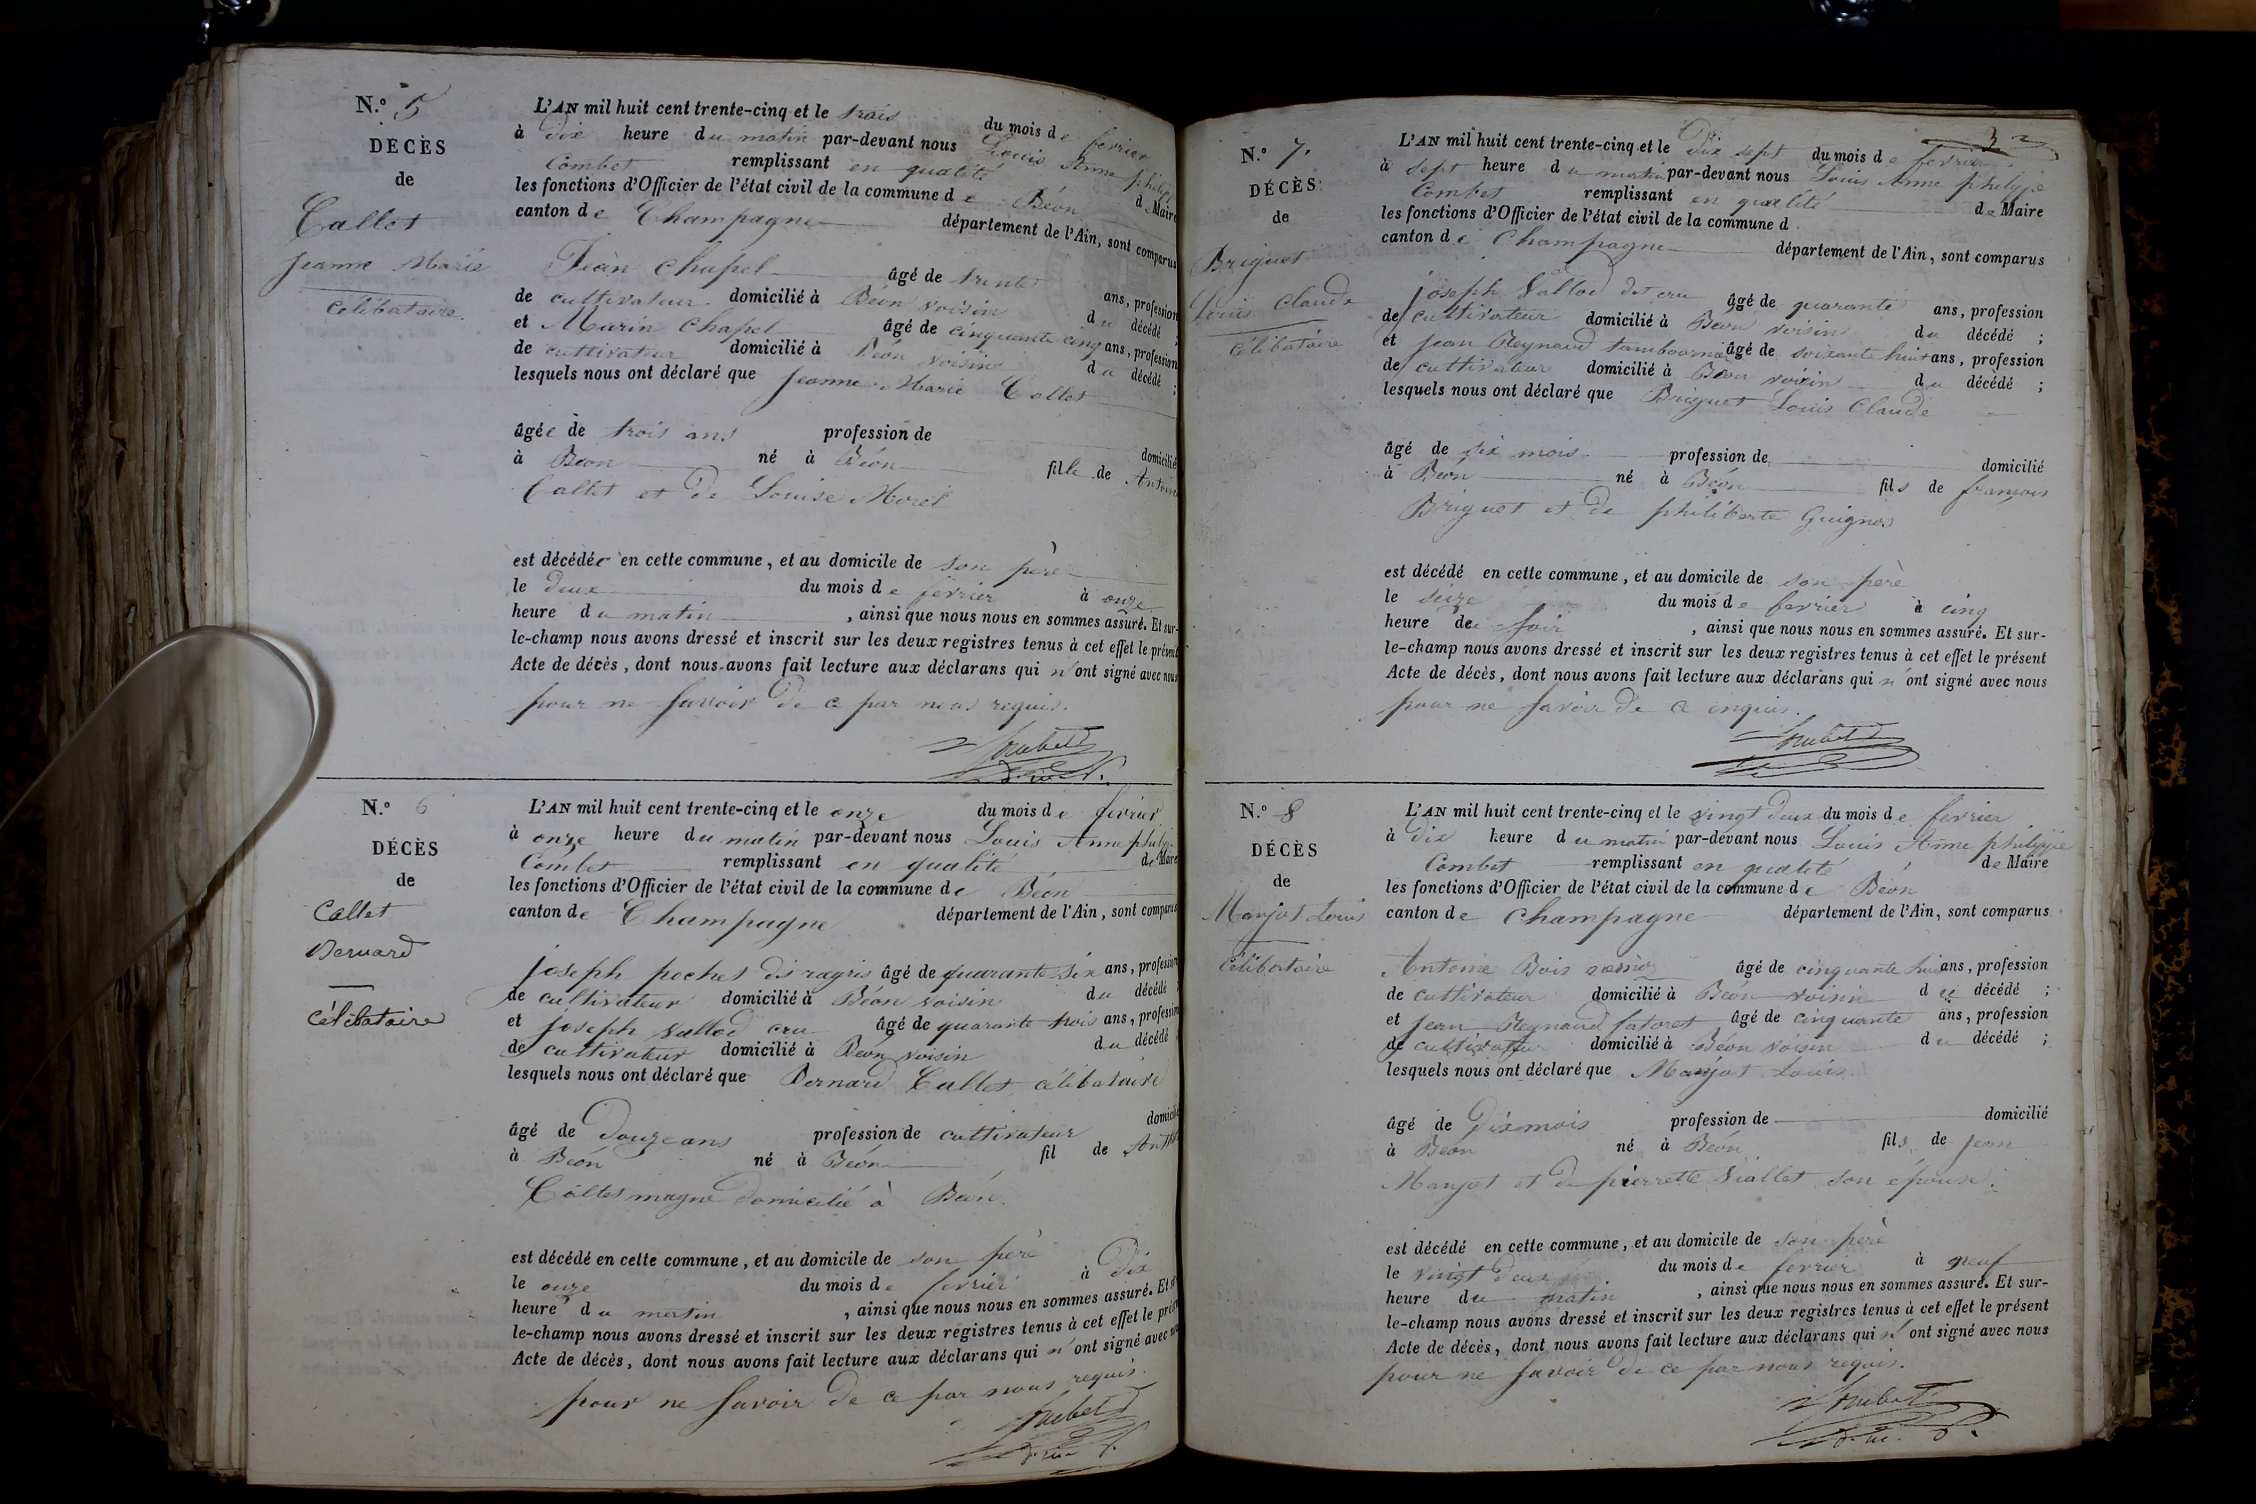 N.º 5
DÉCÈS
de
Callet
Jeanne Marie
célibataire.
L'AN mil huit cent trente-cinq et le trois du mois de fevrier
à dix heure du matin par-devant nous Louis Anne philippe
Combet remplissant en qualité de Maire
les fonctions d'Officier de l'état civil de la commune de Béon
canton de Champagne département de l'Ain, sont comparus
Jean Chapel âgé de trente ans, profession
de cultivateur domicilié à Béon voisin du décédé ;
et Marin Chapel âgé de cinquante cinq ans, profession
de cultivateur domicilié à Béon voisin du décédé ;
lesquels nous ont déclaré que Jeanne Marie Callet
âgée de trois ans profession de domicilié
à Béon né à Béon fille de Antoine
Callet et de Louise Morel
est décédée en cette commune, et au domicile de son père
le deux du mois de fevrier à onze
heure du matin, ainsi que nous nous en sommes assuré. Et sur-
le-champ nous avons dressé et inscrit sur les deux registres tenus à cet effet le présent
Acte de décès, dont nous avons fait lecture aux déclarans qui n'ont signé avec nous
pour ne savoir de ce par nous requis.
N.º 6
DÉCÈS
de
Callet
Bernard
célibataire
L'AN mil huit cent trente-cinq et le onze du mois de fevrier
à onze heure du matin par-devant nous Louis Anne philippe
Combet remplissant en qualité de Maire
les fonctions d'Officier de l'état civil de la commune de Béon
canton de Champagne département de l'Ain, sont comparus
joseph pochet dis âgé de quarante six ans, profession
de cultivateur domicilié à Béon voisin du décédé ;
et joseph Vallod cru âgé de quarante trois ans, profession
de cultivateur domicilié à Béon voisin du décédé
lesquels nous ont déclaré que Bernard Callet célibataire
âgé de douze ans profession de cultivateur domicilié
à Béon né à Béon fil de
Callet magne domicilié à Béon.
est décédé en cette commune, et au domicile de son père
le onze du mois de fevrier à Dix
heure du matin, ainsi que nous nous en sommes assuré. Et sur-
le-champ nous avons dressé et inscrit sur les deux registres tenus à cet effet le présent
Acte de décès, dont nous avons fait lecture aux déclarans qui n'ont signé avec nous
pour ne savoir de ce par nous requis.
3
N.º 7.
DÉCÈS
de
Briguet
Louis Claude
célibataire
L'AN mil huit cent trente-cinq et le dix sept du mois de fevrier
à sept heure du matin par-devant nous Louis Anne philippe
Combet remplissant en qualité de Maire
les fonctions d'Officier de l'état civil de la commune d
canton de Champagne département de l'Ain, sont comparus
joseph Vallod dit cru âgé de quarante ans, profession
de cultivateur domicilié à Béon voisin du décédé ;
et Jean Reynaud âgé de soixante huit ans, profession
de cultivateur domicilié à Béon voisin du décédé ;
lesquels nous ont déclaré que Briguet Louis Claude
âgé de six mois profession de domicilié
à Béon né à Béon fils de françois
Briguet et de philiberte
est décédé en cette commune, et au domicile de son père
le seize du mois de fevrier à cinq
heure de soir, ainsi que nous nous en sommes assuré. Et sur-
le-champ nous avons dressé et inscrit sur les deux registres tenus à cet effet le présent
Acte de décès, dont nous avons fait lecture aux déclarans qui n'ont signé avec nous
pour ne savoir de ce enquis.
N.º 8
DÉCÈS
de
Manjot Louis
célibataire
L'AN mil huit cent trente-cinq et le vingt deux du mois de fevrier
à Dix heure du matin par-devant nous Louis Anne philippe
Combet remplissant en qualité de Maire
les fonctions d'Officier de l'état civil de la commune de Béon
canton de Champagne département de l'Ain, sont comparus
Antoine Bois âgé de cinquante huit ans, profession
de cultivateur domicilié à Béon voisin du décédé ;
et Jean Reynaud âgé de cinquante ans, profession
de cultivateur domicilié à Béon voisin du décédé ;
lesquels nous ont déclaré que Manjot Louis
âgé de Dix mois profession de domicilié
à Béon né à Béon fils de jean
Manjot et de pierrette Viallet son épouse.
est décédé en cette commune, et au domicile de son père
le vingt deux du mois de fevrier à neuf
heure du matin, ainsi que nous nous en sommes assuré. Et sur-
le-champ nous avons dressé et inscrit sur les deux registres tenus à cet effet le présent
Acte de décès, dont nous avons fait lecture aux déclarans qui n'ont signé avec nous
pour ne savoir de ce par nous requis.